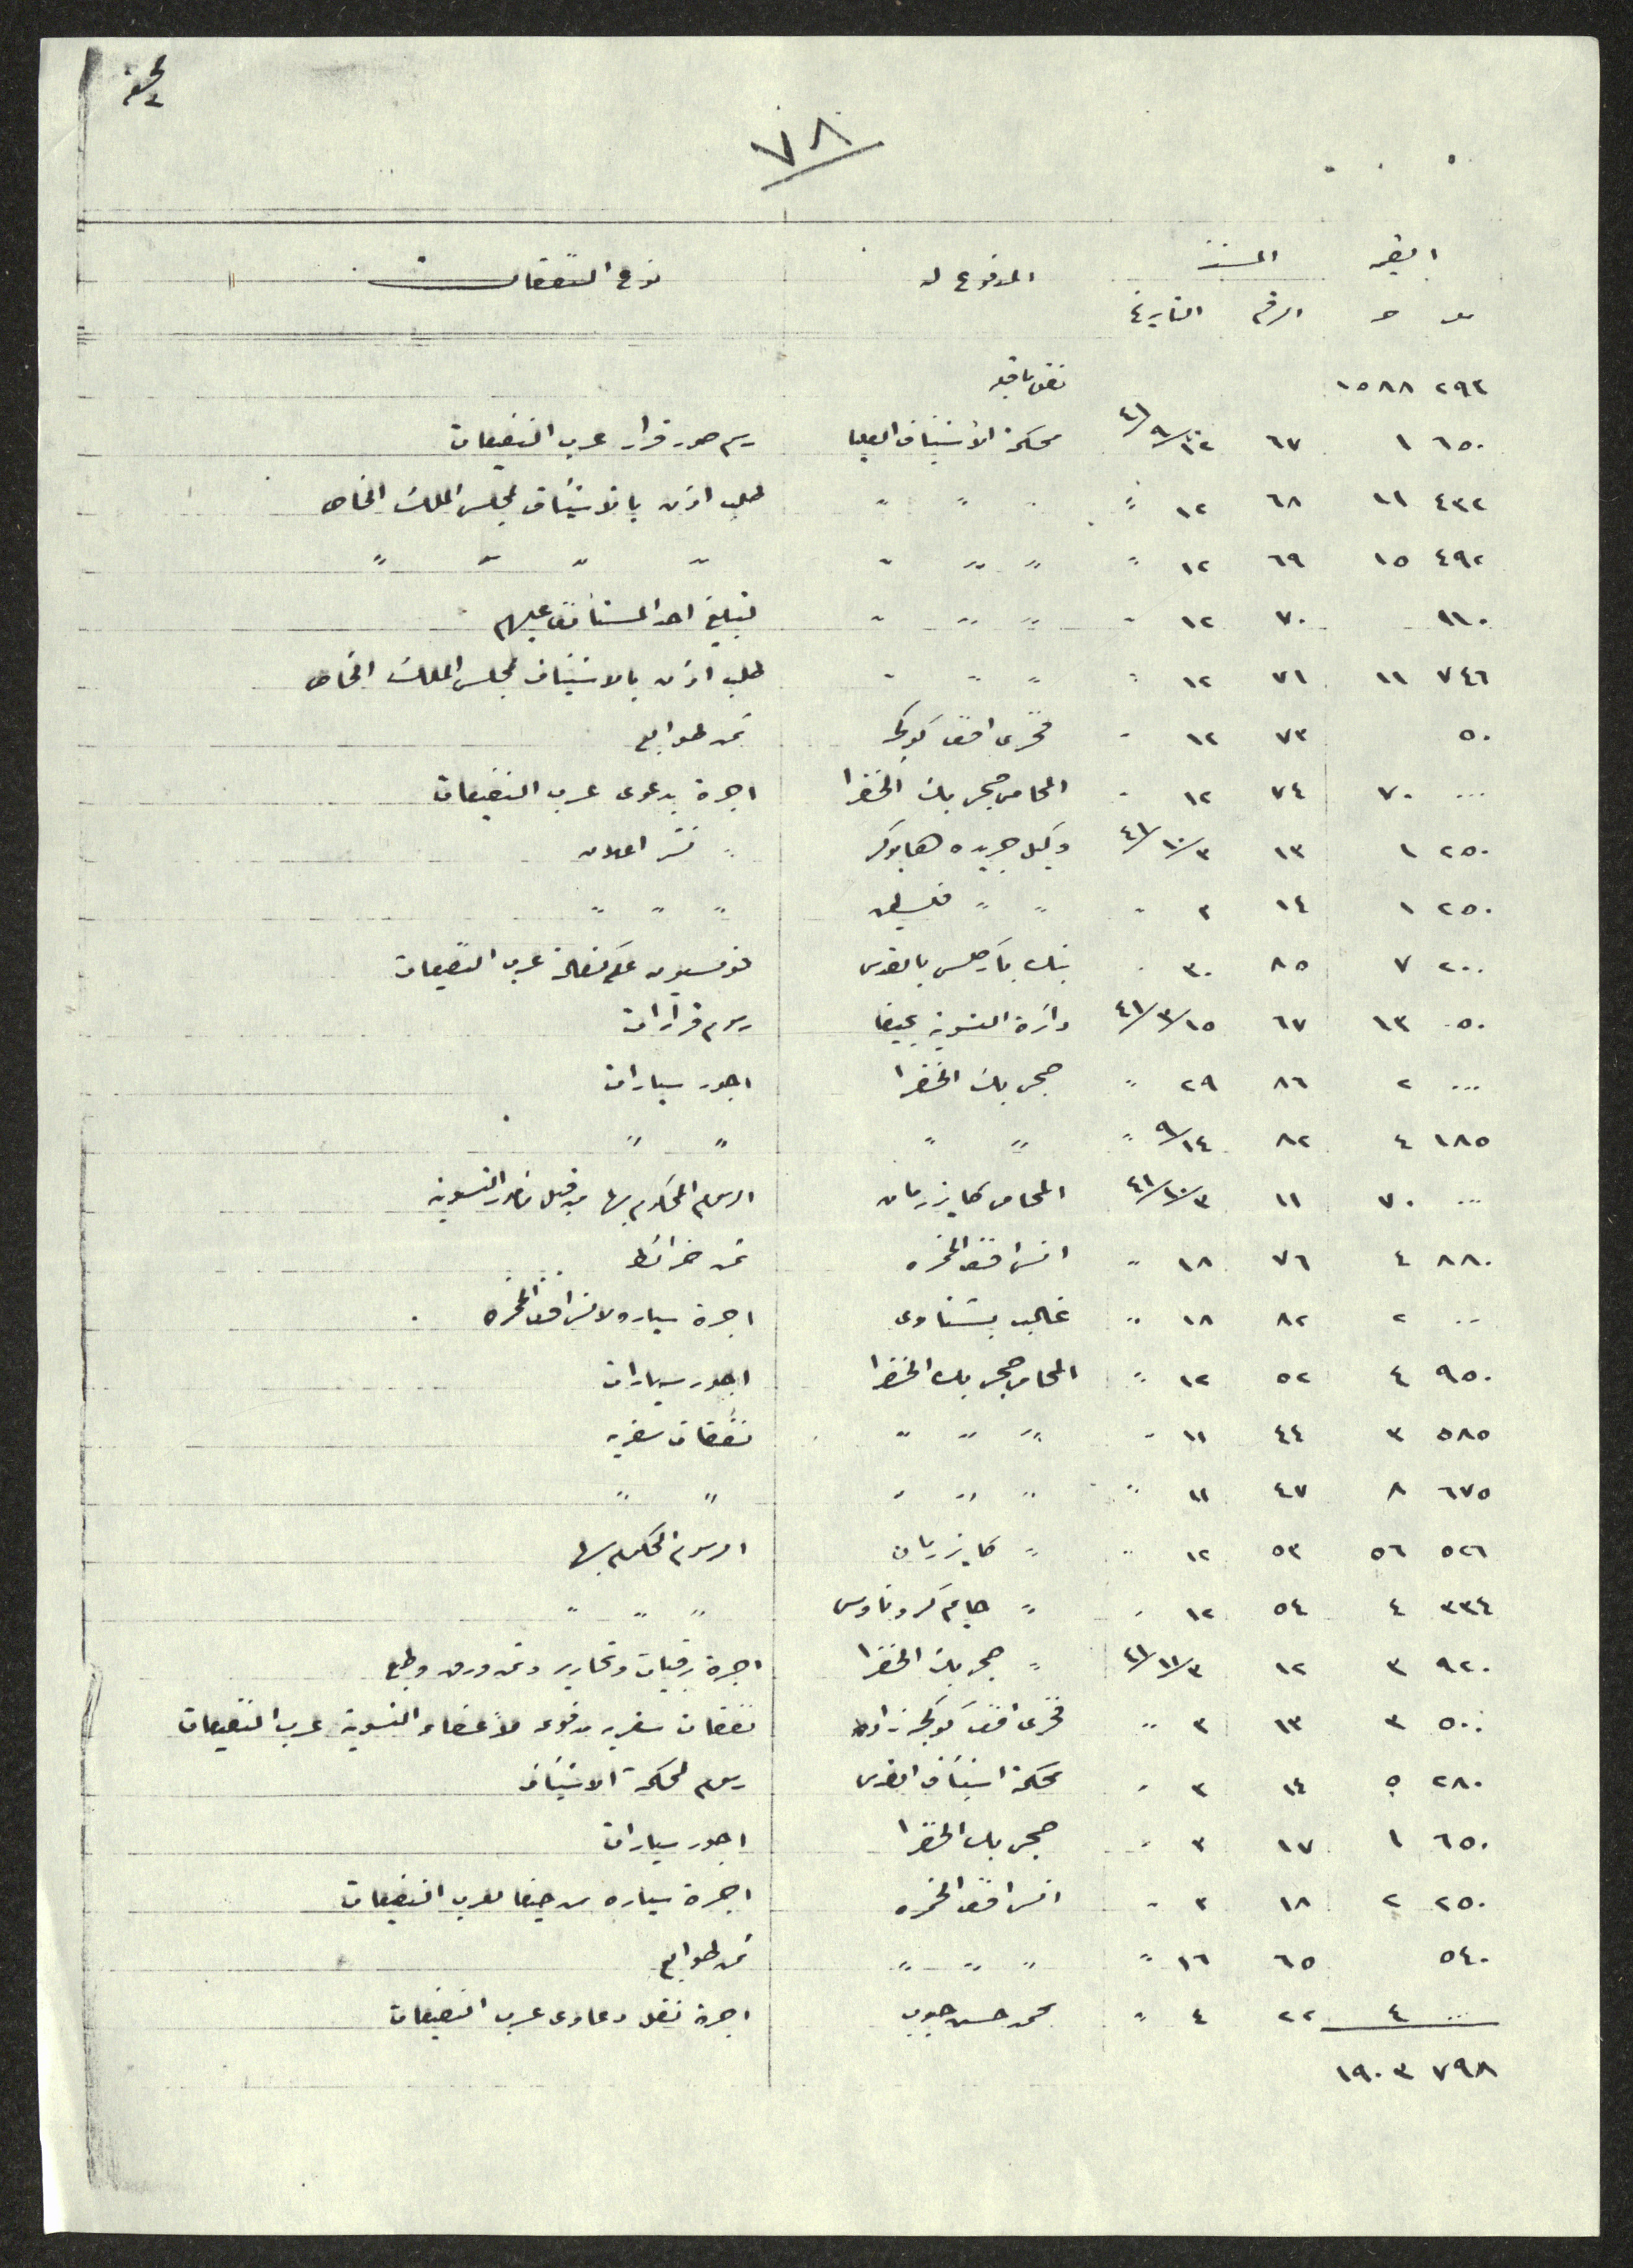 ٧٨
القيمة المستند المدفوع له نوع النفقات
مل ج الرقم التاريخ
٢٩٣ ١٥٨٨ نقل ما قبله
٦٥٠ ١ ٦٧ ١٢/٩/٤١ محكمة الأستئناف العليا رسم صور قرار عرب النفيعات
٤٣٢ ١١ ٦٨ ١٢ " " " " طلب اذن بالاستئناف لمجلس الملك الخاص
٤٩٢ ١٥ ٦٩ ١٢ " " " " " " " "
١١٠ ٧٠ ١٢ " " " " تبليغ احد المستأنف عليهم
٧٤٦ ١١ ٧١ ١٢ " " " " طلب اذن بالاستئناف لمجلس الملك الخاص
٥٠ ٧٣ ١٢ " فخرى افندي كوكجه ثمن طوابع
... ٧٠ ٧٤ ١٢ " المحامي صبحي بك الخضرا اجرة بدعوى عرب النفيعات
٢٥٠ ١ ١٣ ٣/١٠/٤١ وكيل جريده هابوكر " نشر اعلان
٢٥٠ ١ ١٤ ٣ " " " فلسطين " " "
٢٠٠ ٧ ٨٥ ٣٠ " بنك باركلس بالقدس قومسيون على كفالة عرب النفيعات
٠٥٠ ١٣ ٦٧ ١٥/٣/٤١ دائرة التسوية بحيفا رسوم قرارات
... ٢ ٨٦ ٢٩ " صبحي بك الخضرا اجور سيارات
١٨٥ ٤ ٨٢ ١٤/٩ " " " " "
... ٧٠ ١١ ٣/١٠/٤١ المحامي كايزرمان الرسوم المحكوم بها من قبل مأمور التسوية
٨٨٠ ٤ ٧٦ ١٨ " انس افندي الخمره ثمن خرائط
... ٢ ٨٢ ١٨ " غالب بشناوى اجرة سياره لانس افندي الخمره
٩٥٠ ٤ ٥٢ ١٢ " المحامي صبحي بك الخضرا اجور سيارات
٥٨٥ ٣ ٤٤ ١١ " " " " نفقات سفريه
٦٧٥ ٨ ٤٧ ١١ " " " " " "
٥٢٦ ٥٦ ٥٣ ١٢ " " كايزرمان الرسوم المحكوم بها
٣٣٤ ٤ ٥٤ ١٢ " " حايم " " "
٩٢٠ ٣ ١٢ ٣/١١/٤١ " صبحي بك الخضرا اجرة برقيات وتحارير وثمن ورق وطبع
٥٠٠ ٣ ١٣ ٣ " فخرى افندي كوكجه زاده نفقات سفريه مدفوعه لأعضاء التسوية عرب النفيعات
٢٨٠ ٥ ١٤ ٣ " محكمة استئناف القدس رسوم لمحكمة الاستئناف
٦٥٠ ١ ١٧ ٣ " صبحي بك الخضرا اجور سيارات
٢٥٠ ٢ ١٨ ٣ " انس افندي الخمره اجرة سياره من حيفا لعرب النفيعات
٥٤٠ ٦٥ ١٦ " " " " ثمن طوابع
... ٤ ٢٢ ٤ " محمد حسن اجرة نقل دعاوى عرب النفيعات
٧٩٨ ١٩٠٣